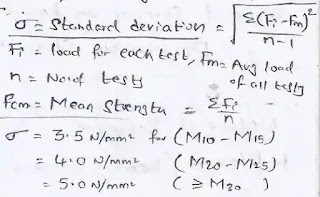 σ = Standard deviation = √Σ(Fi-Fm)²/n-1
Fi = load for each test, Fm = Avg load of all tests
n = No of tests
Fcm = Mean Strength = ΣFi/n
σ = 3.5 N/mm² for (M10 - M15)
= 4.0 N/mm² (M20 - M25)
= 5.0 N/mm² (≥ M30 )